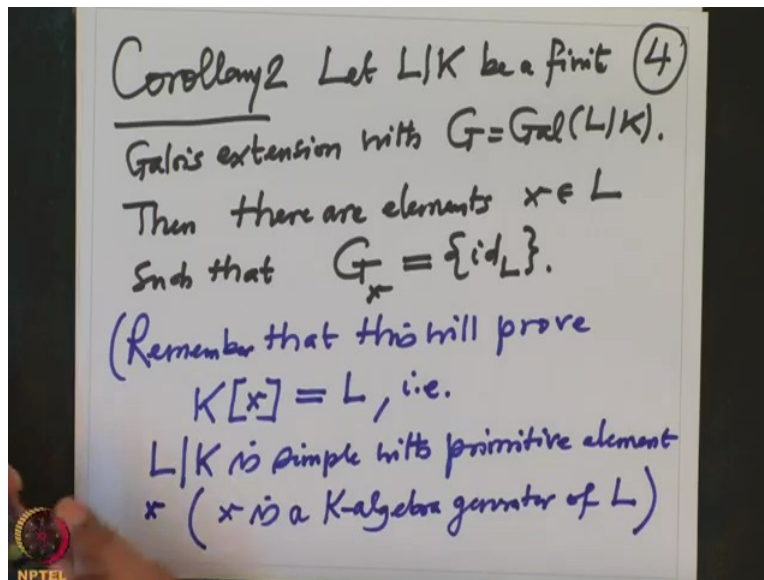 Corollary 2 Let L|K be a finit ④
Galois extension with G = Gal(L|K).
Then there are elements x ∈ L
Such that G_x = {id_L}.
(Remember that this will prove
K[x] = L, i.e.
L|K is simple with primitive element
x (x is a K-algebra generator of L)
NPTEL